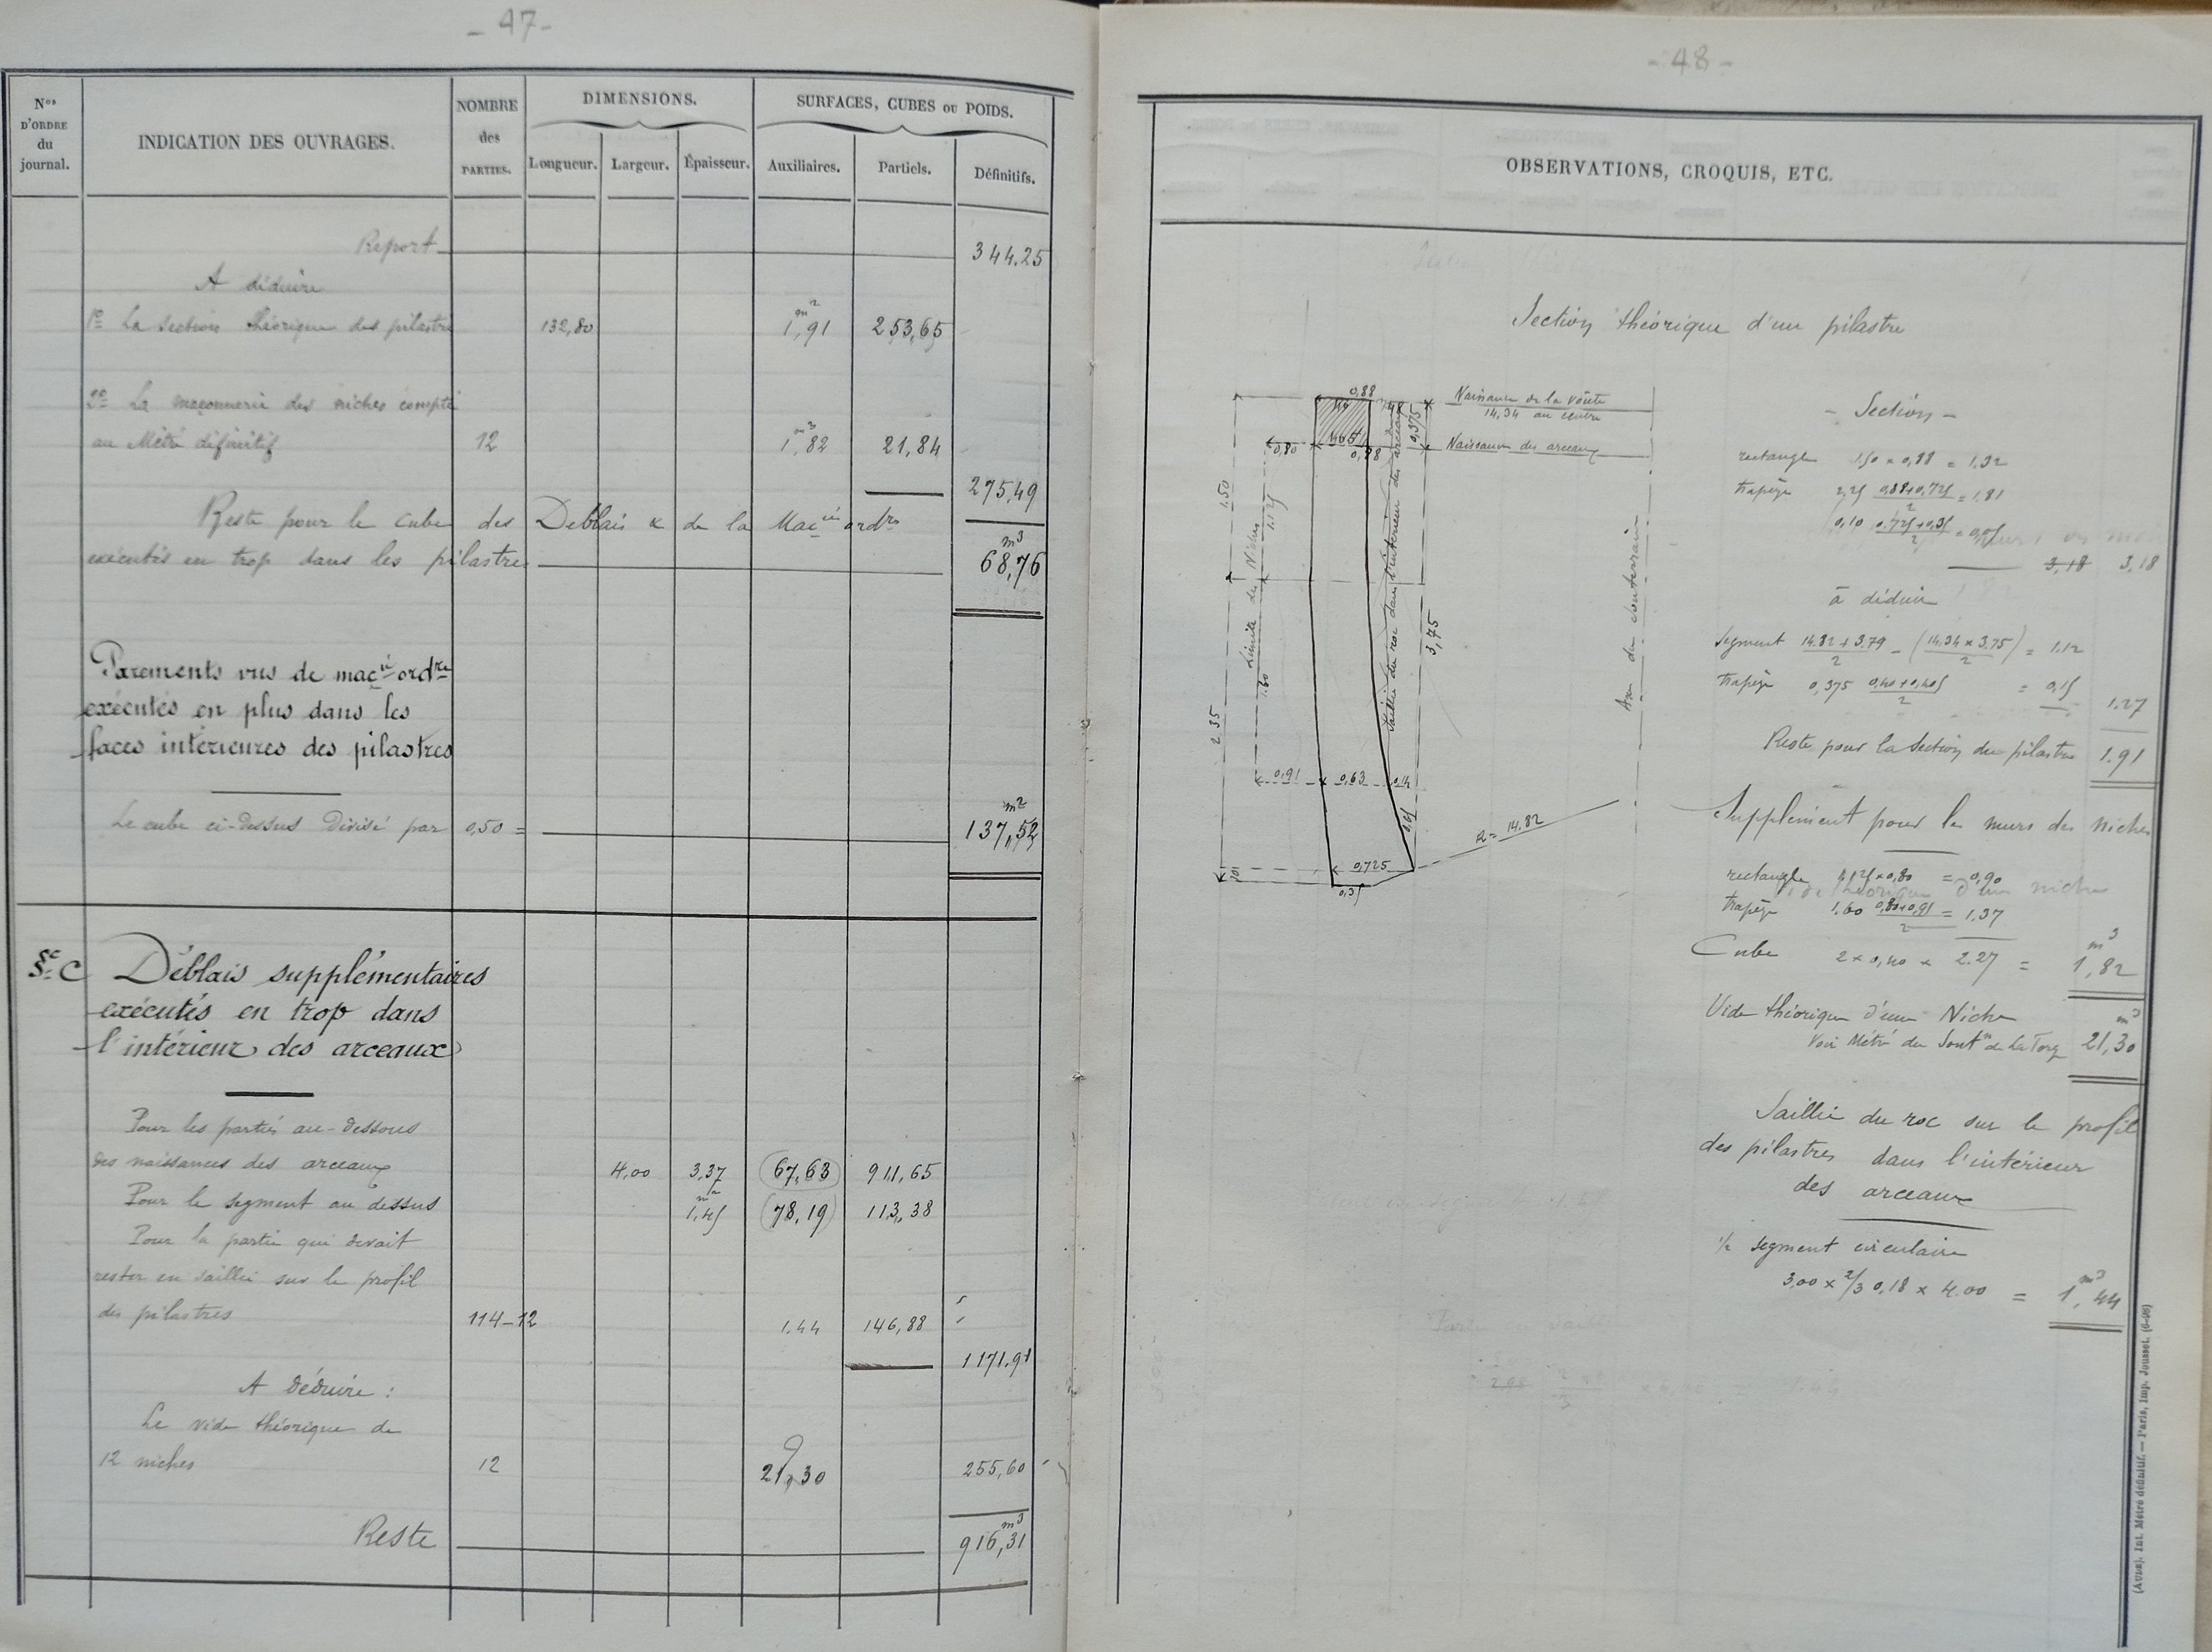 - 47 -
Nos D'ORDRE du journal.
INDICATION DES OUVRAGES.
NOMBRE des PARTIES.
DIMENSIONS.
SURFACES, CUBES ou POIDS.
Longueur. Largeur. Épaisseur. Auxiliaires. Partiels. Définitifs.
Report 344.25
A déduire
1º La section théorique des pilastres 132,80 1,91 m2 253,65
2º La maçonnerie des niches compté
au Métré définitif 12 1,82 m3 21,84
275,49
Reste pour le cube des Déblais & de la Macie ordre
exécutés en trop dans les pilastres 68,76 m3
Parements vus de macie ordre
exécutés en plus dans les
faces intérieures des pilastres
Le cube ci-dessus Divisé par 0,50 = 137,52 m2
§c C Déblais supplémentaires
exécutés en trop dans
l'intérieur des arceaux
Pour les parties au-dessous
des naissances des arceaux 4,00 3,37 (67,63) 911,65
Pour le segment au dessus 1,45 m2 (78,19) 113,38
Pour la partie qui devait
rester en saillie sur le profil
des pilastres 114-12 1.44 146,88
1171.91
A Déduire :
Le vide théorique de
12 niches 12 21,30 255,60
Reste 916,31 m3
- 48 -
OBSERVATIONS, CROQUIS, ETC.
Section théorique d'un pilastre
0,88
Naissance de la voûte
14,34 au centre
Naissance des arceaux
0,375
0,80
1.50
1.125
Limite des Niches
1.60
2.35
Saillie du roc dans l'intérieur des arceaux
3,75
Axe du souterrain
0,91 0,63 0,14
0,65
R = 14.82
0,725
0,35
- Section -
rectangle 1,50 × 0,88 = 1,32
trapèze 2,25 0,88+0,725/2 = 1,81
0,10 0,725+0,35/2 = 0,05
3,18 3,18
à déduire
Segment 14.82 + 3.79/2 - (14.34 × 3.75/2) = 1.12
trapèze 0,375 0,40+0,405/2 = 0,15
1.27
Reste pour la Section du pilastre 1.91
Supplément pour le murs des niches
rectangle 1,125×0,80 = 0,90
trapèze 1.60 0,80+0,91/2 = 1,37
Cube 2×0,40 × 2.27 = 1,82 m3
Vide théorique d'une Niche
Voir Métré du Soutn de La Torq 21,30 m3
Saillie du roc sur le profil
des pilastres dans l'intérieur
des arceaux
1/2 segment circulaire
3,00 × 2/3 0,18 × 4.00 = 1,44 m3
(Aude). Int. Métré définitif. — Paris, Imp. Jousset. (6-98)